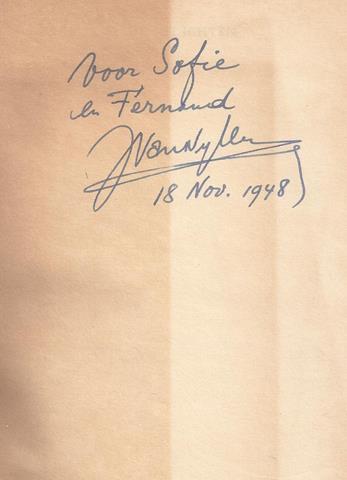 Voor Sofie
en Fernand
18 Nov. 1948